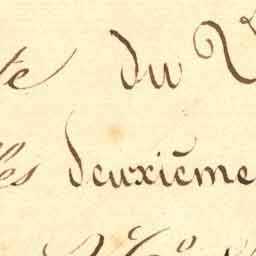 te du V
les deuxième